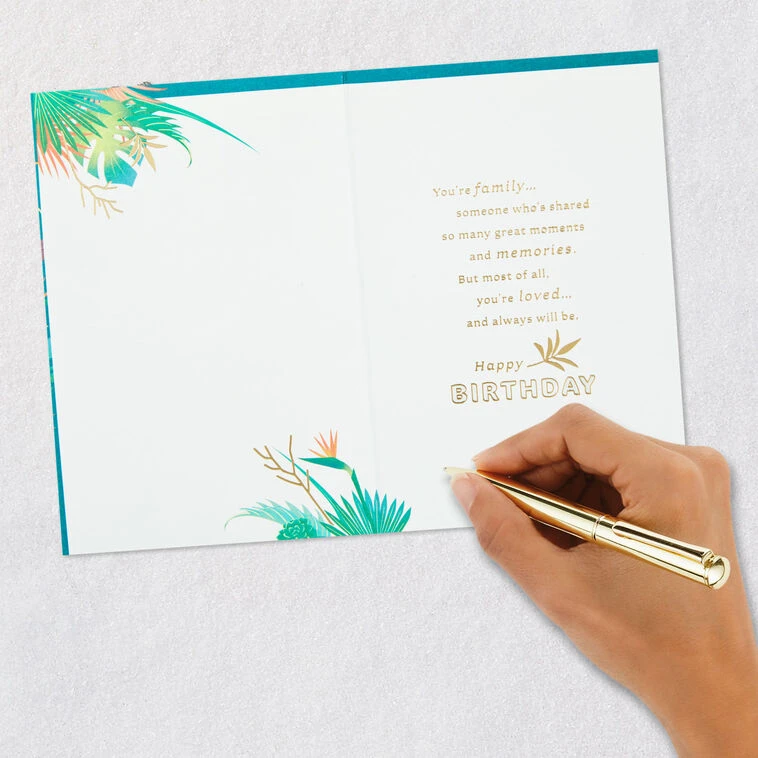 You're family...
someone who's shared
so many great moments
and memories.
But most of all,
you're loved...
and always will be.
Happy
BIRTHDAY